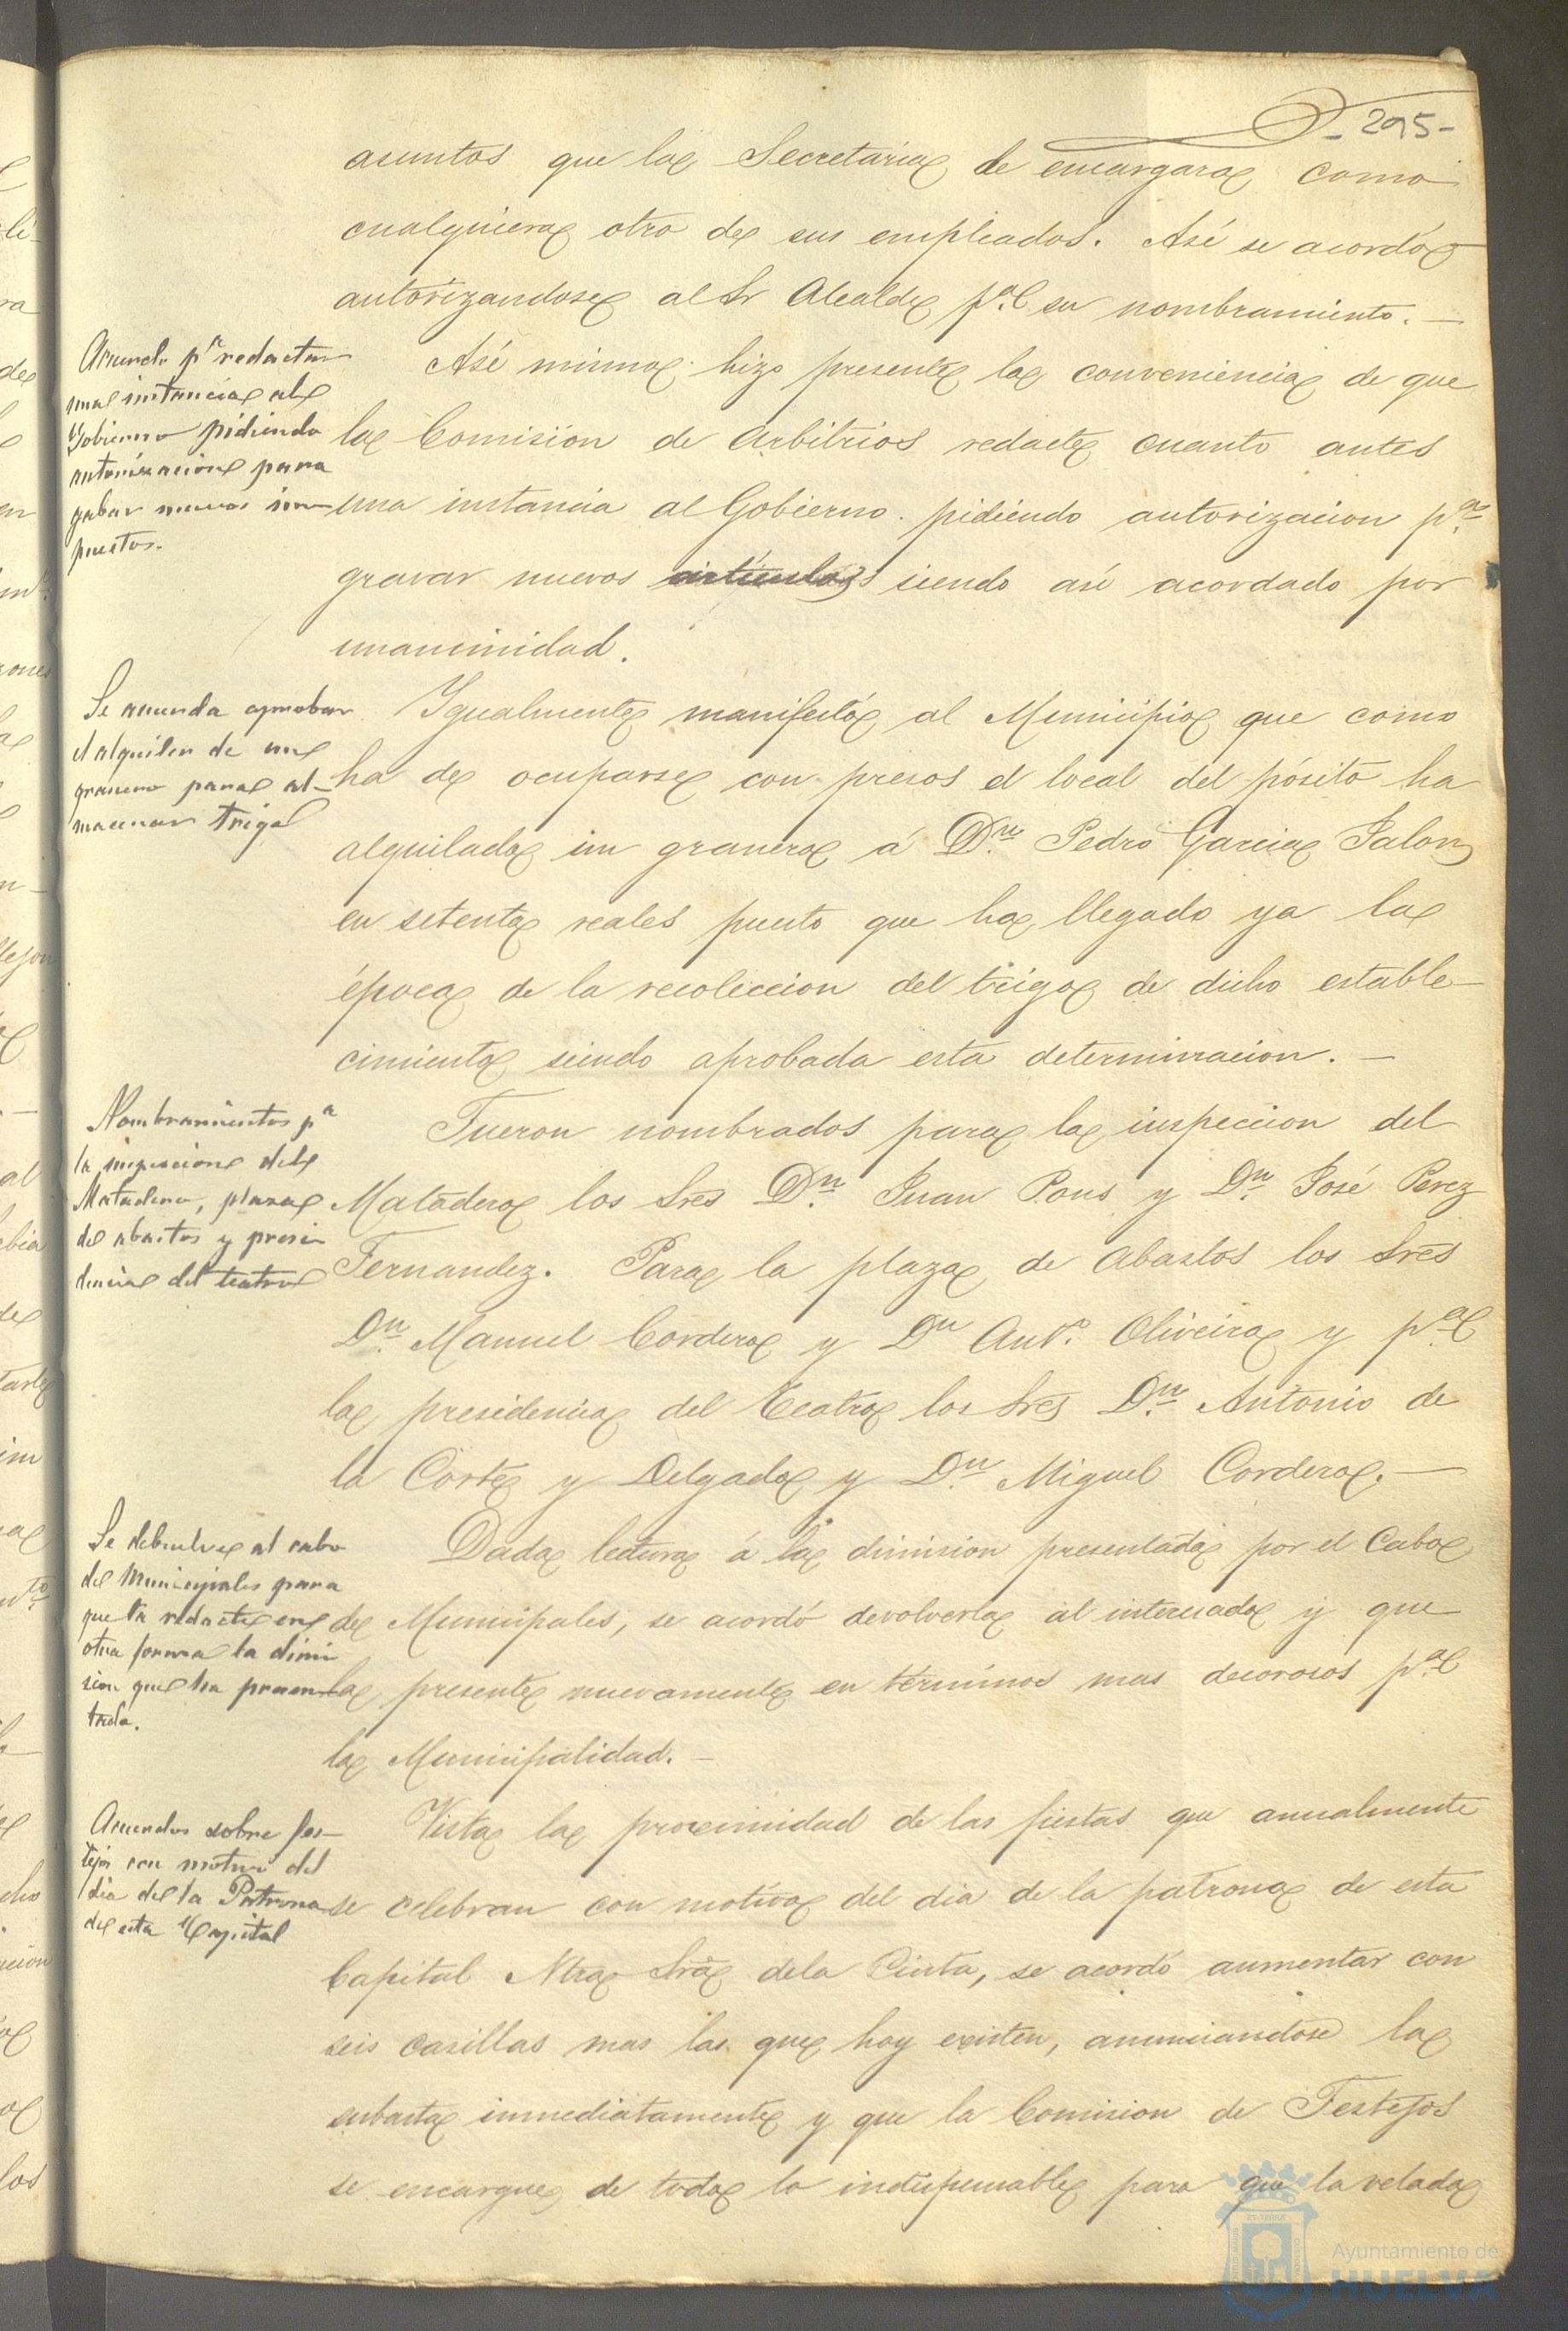 - 295 -
asuntos que la Secretaria le encargara como
cualquiera otro de sus empleados. Asi se acordó
autorizandose al Sr Alcalde pa. su nombramiento. —
Acuerdo pa redactar
una instancia al
Gobierno pidiendo
autorizacion para
gabar nuevos im-
puestos.
Asi mismo hizo presente la conveniencia de que
la Comision de arbitrios redacte cuanto antes
una instancia al Gobierno pidiendo autorizacion pa.
gravar nuevos articulos siendo asi acordado por
unanimidad.
Se acuerda aprobar
el alquiler de un
granero para al-
macenar trigo
Igualmente manifestó al Municipio que como
ha de ocuparse con presos el local del pósito ha
alquilado un granero á Dn. Pedro Garcia Jalon
en setenta reales puesto que ha llegado ya la
época de la recoleccion del trigo de dicho estable-
cimiento siendo aprobada esta determinacion. —
Nombramientos pa
la inspeccion del
Matadero, plaza
de abastos y presi
dencia del teatro
Fueron nombrados para la inspeccion del
Matadero los Sres Dn. Juan Pons y Dn. José Perez
Fernandez. Para la plaza de Abastos los Sres
Dn. Manuel Cordero y Dn Anto. Oliveira y pa.
la presidencia del Teatro los Sres Dn. Antonio de
la Corte y Delgado y Dn. Miguel Cordero. —
Se debuelve al cabo
de Municipales para
que la redacte en
otra forma la dimi
sion que ha presen-
tada.
Dada lectura á la dimision presentada por el Cabo
de Municipales, se acordó devolverla al interesado y que
la presente nuevamente en términos mas decorosos pa.
la Municipalidad. —
Acuerdos sobre fes-
tejos con motivo del
dia de la Patrona
de esta Capital
Vista la proximidad de las fiestas que anualmente
se celebran con motivo del dia de la patrona de esta
Capital Ntra Sra dela Cinta, se acordó aumentar con
seis casillas mas las que hoy existen, anunciandose la
subasta inmediatamente y que la Comision de Festejos
se encargue de todo lo indispensable para que la velada
Ayuntamiento de
HUELVA